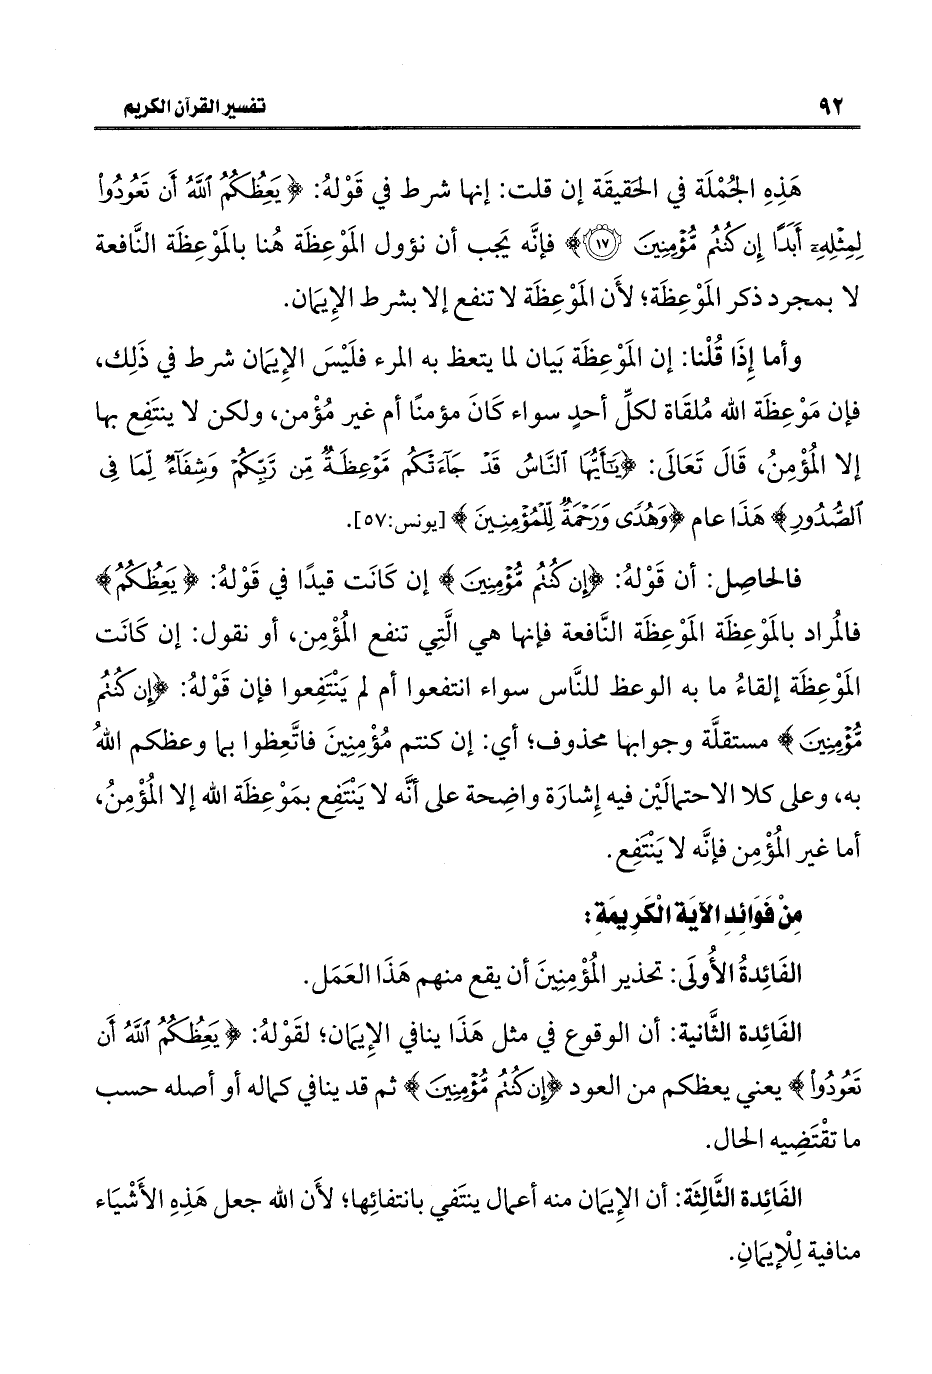 ٩٢ تفسير القرآن الكريم
هَذِهِ الجُمْلَة في الحَقيقَة إن قلت: إنها شرط في قَوْلهُ: ﴿يَعِظُكُمُ ٱللَّهُ أَن تَعُودُوا۟
لِمِثْلِهِۦٓ أَبَدًا إِن كُنتُم مُّؤْمِنِينَ ﴿١٧﴾﴾ فإنَّه يَجب أن نؤول المَوْعِظَة هُنا بالمَوْعِظَة النَّافعة
لا بمجرد ذكر المَوْعِظَة؛ لأن المَوْعِظَة لا تنفع إلا بشرط الإيمَان.
وأما إِذَا قُلْنا: إن المَوْعِظَة بَيان لما يتعظ به المرء فلَيْسَ الإيمَان شرط في ذَلِك،
فإن مَوْعِظَة الله مُلقَاة لكلِّ أحدٍ سواء كَانَ مؤمنًا أم غير مُؤْمن، ولكن لا ينتَفِع بها
إلا المُؤْمِنُ، قَالَ تَعَالَى: ﴿يَـٰٓأَيُّهَا ٱلنَّاسُ قَدْ جَآءَتْكُم مَّوْعِظَةٌ مِّن رَّبِّكُمْ وَشِفَآءٌ لِّمَا فِى
ٱلصُّدُورِ﴾ هَذَا عام ﴿وَهُدًى وَرَحْمَةٌ لِّلْمُؤْمِنِينَ﴾ [يونس:٥٧].
فالحاصِل: أن قَوْلهُ: ﴿إِن كُنتُم مُّؤْمِنِينَ﴾ إن كَانَت قيدًا في قَوْلهُ: ﴿يَعِظُكُمُ﴾
فالمُراد بالمَوْعِظَة المَوْعِظَة النَّافعة فإنها هي الَّتِي تنفع المُؤْمن، أو نقول: إن كَانَت
المَوْعِظَة إلقاءُ ما به الوعظ للنَّاس سواء انتفعوا أم لم يَنْتَفِعوا فإن قَوْلهُ: ﴿إِن كُنتُم
مُّؤْمِنِينَ﴾ مستقلَّة وجوابها محذوف؛ أي: إن كنتم مُؤْمِنِينَ فاتَّعِظوا بما وعظكم اللهُ
به، وعلى كلا الاحتمالَيْن فيه إشارَة واضِحة على أنَّه لا يَنْتَفِع بمَوْعِظَة الله إلا المُؤْمِنُ،
أما غير المُؤْمن فإنَّه لا يَنْتَفِع.
مِنْ فَوَائِدِ الآيَةِ الْكَرِيمَةِ:
الفَائِدةُ الأُولَى: تحذير المُؤْمِنِينَ أن يقع منهم هَذَا العَمَل.
الفَائِدة الثَّانية: أن الوقوع في مثل هَذَا ينافي الإيمَان؛ لقَوْلهُ: ﴿يَعِظُكُمُ ٱللَّهُ أَن
تَعُودُوا۟﴾ يعني يعظكم من العود ﴿إِن كُنتُم مُّؤْمِنِينَ﴾ ثم قد ينافي كماله أو أصله حسب
ما تقْتَضِيه الحال.
الفَائِدة الثَّالِثَة: أن الإيمَان منه أعمال ينتَفي بانتفائِها؛ لأن الله جعل هَذِهِ الأَشْيَاء
منافية لِلْإيمَانِ.